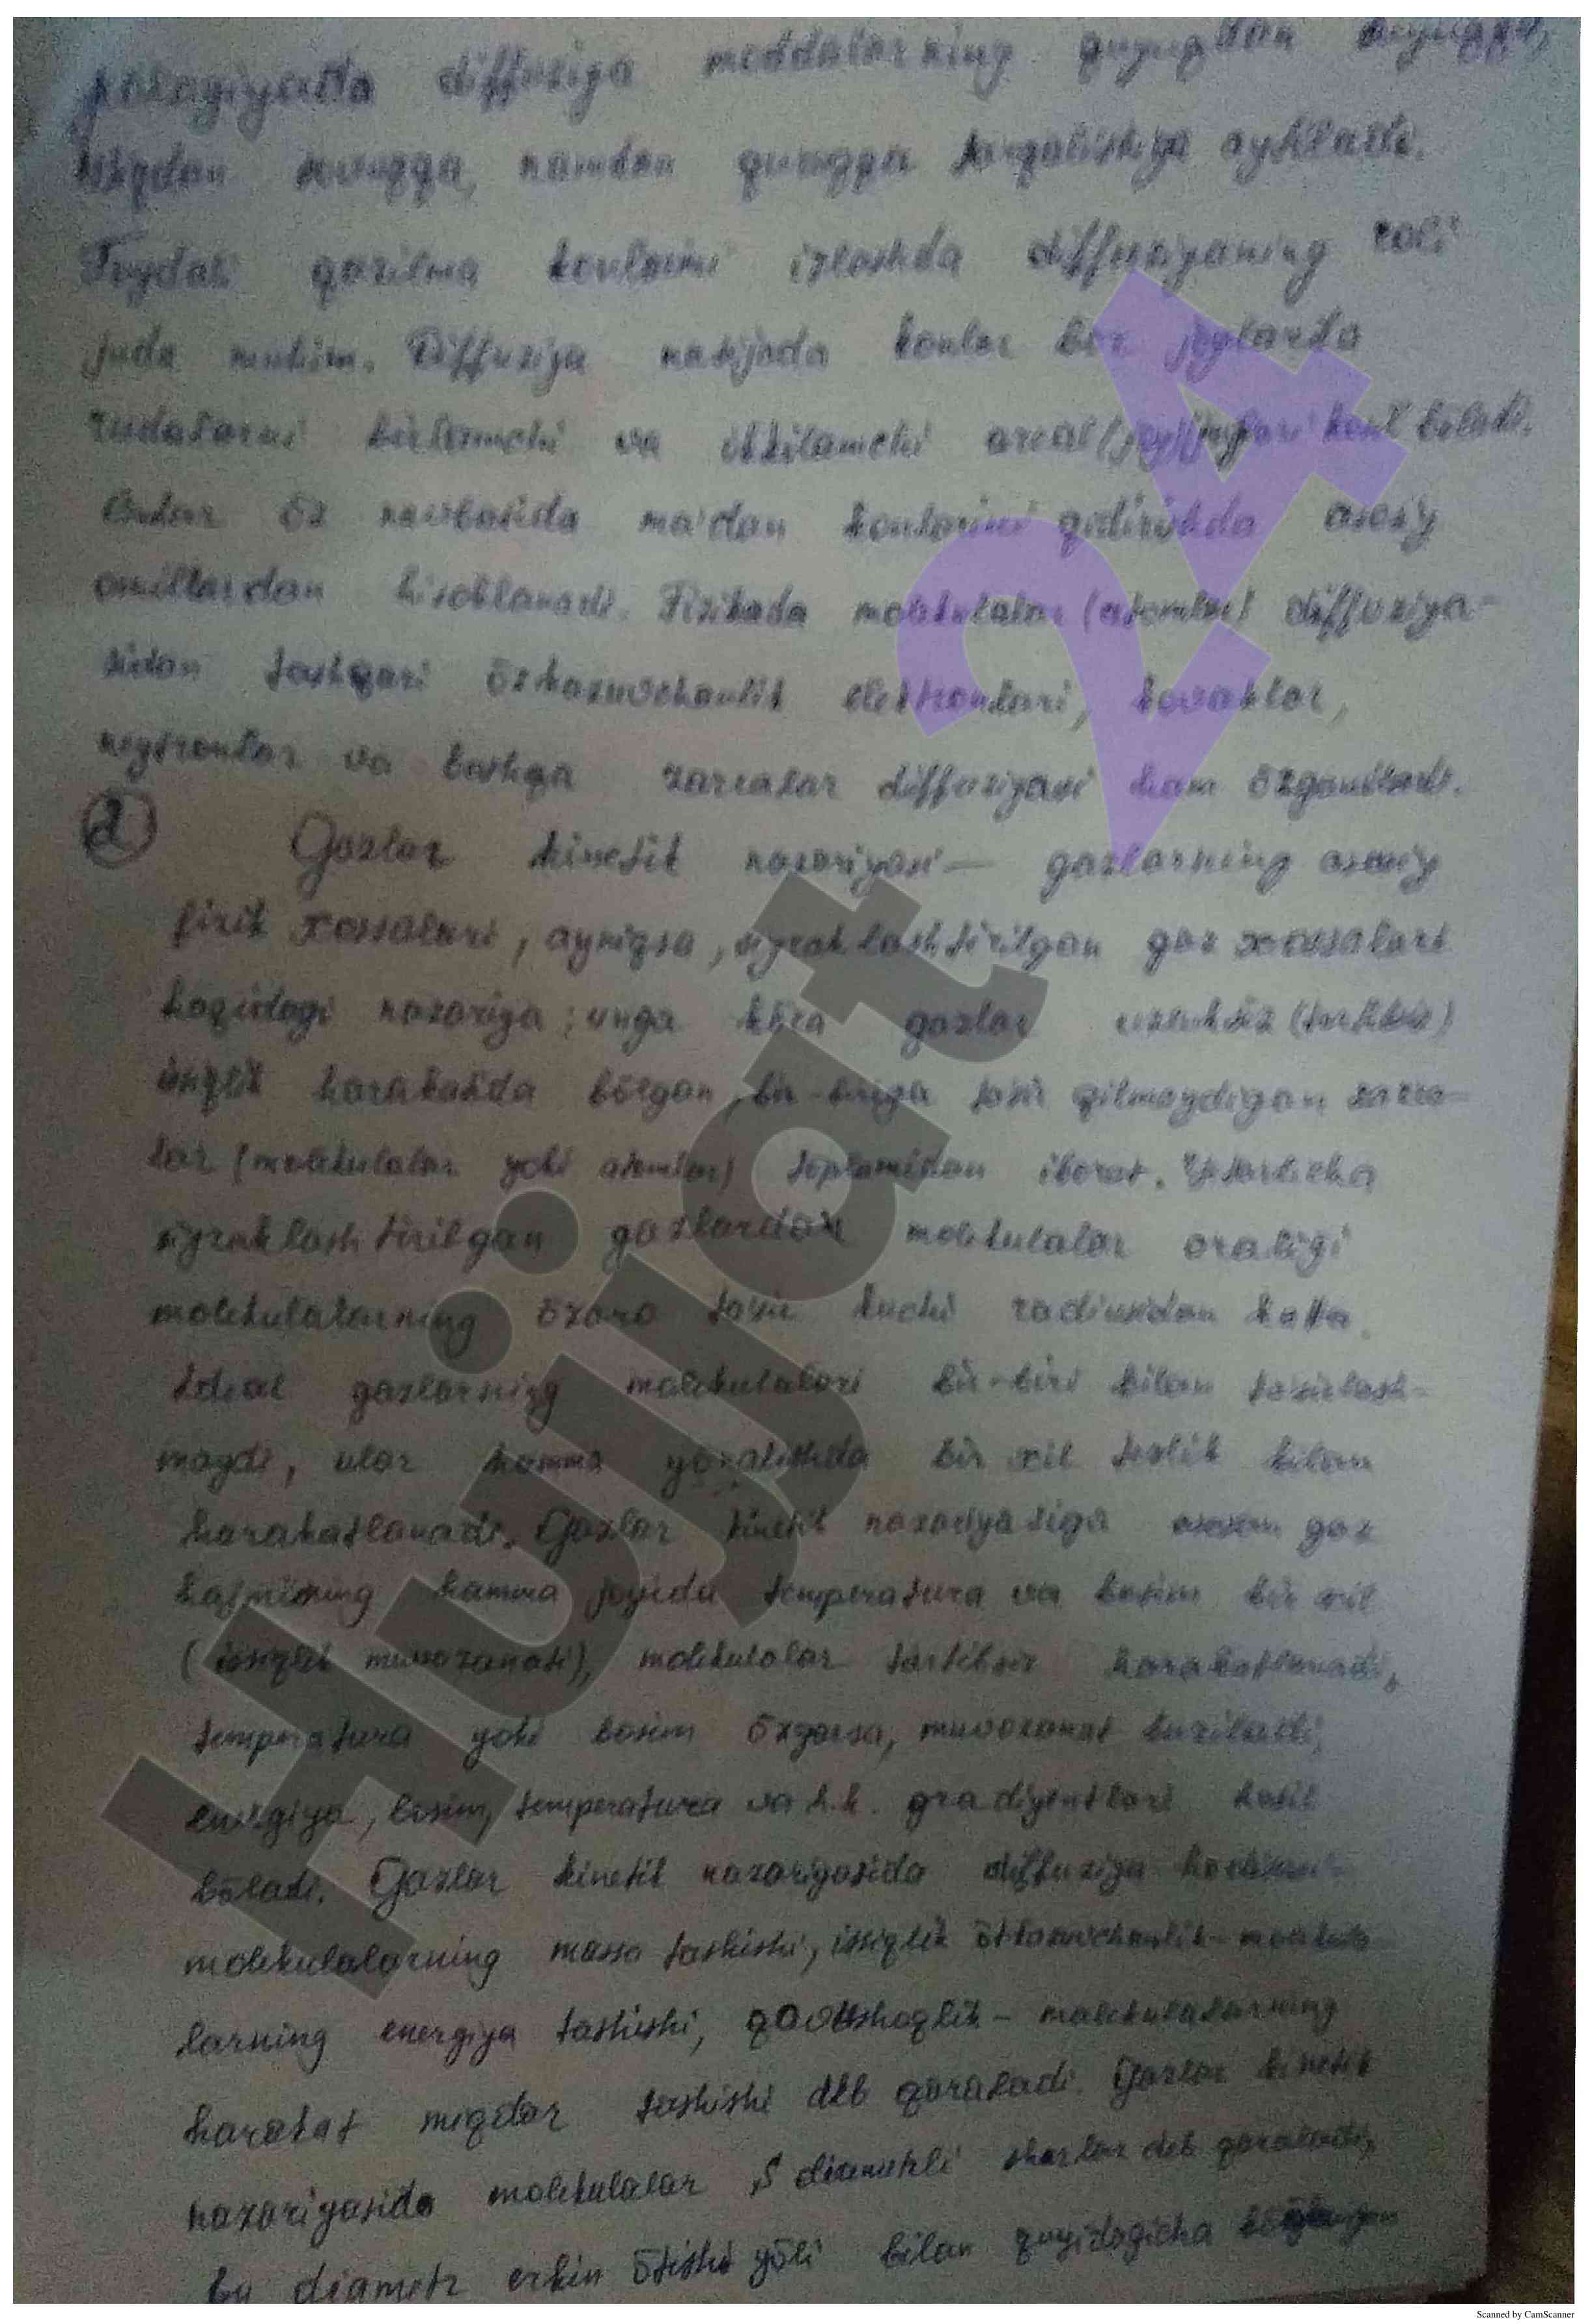 diffuziya moddalarning quyuqdan suyuqqa,
issiqdan sovuqqa, namdan quruqqa tarqalishiga aytiladi.
Foydali qazilma konlarini izlashda diffuziyaning roli
juda muhim. Diffuziya natijada konlar bor joylarda
rudalarni birlamchi va ikkilamchi areal (joy)
Bular õz navbatida ma'dan konlarini qidirishda asosiy
omillardan hisoblanadi. Fizikada molekulalar (atomlar) diffuziya-
sidan tashqari õtkazuvchanlik elektronlari, kovaklar,
neytronlar va boshqa zarralar diffuziyasi ham õrganiladi.
2 Gazlar kinetik nazariyasi — gazlarning asosiy
fizik xossalari, ayniqsa, siyraklashtirilgan gaz xossalari
haqidagi nazariya; unga kõra gazlar uzluksiz (tartibsiz)
issiqlik harakatida bõlgan, bir-biriga tasir qilmaydigan zarra-
lar (molekulalar yoki atomlar) tõplamidan iborat. Yetarlicha
siyraklashtirilgan gazlardan molekulalar oraligi
molekulalarning õzaro tasir kuchi radiusidan katta.
Ideal gazlarning molekulalari bir-biri bilan tasirlash-
maydi, ular hamma yõnalishda bir xil tezlik bilan
harakatlanadi. Gazlar kinetik nazariyasiga asosan gaz
hajmining hamma joyida temperatura va bosim bir xil
(issiqlik muvozanati), molekulalar tartibsiz harakatlanadi,
temperatura yoki bosim õzgarsa, muvozanat buziladi,
energiya, bosim, temperatura va h.k. gradiyentlari hosil
bõladi. Gazlar kinetik nazariyasida diffuziya hodisasi-
molekulalarning massa tashishi, issiqlik õtkazuvchanlik- molekula
larning energiya tashishi, qovushoqlik - molekulalarning
harakat miqdor tashishi deb qaraladi. Gazlar kinetik
nazariyasida molekulalar S diametrli sharlar deb qaraladi,
bu diametr erkin õtishi yõli bilan quyidagicha
Hujjat 24
Scanned by CamScanner